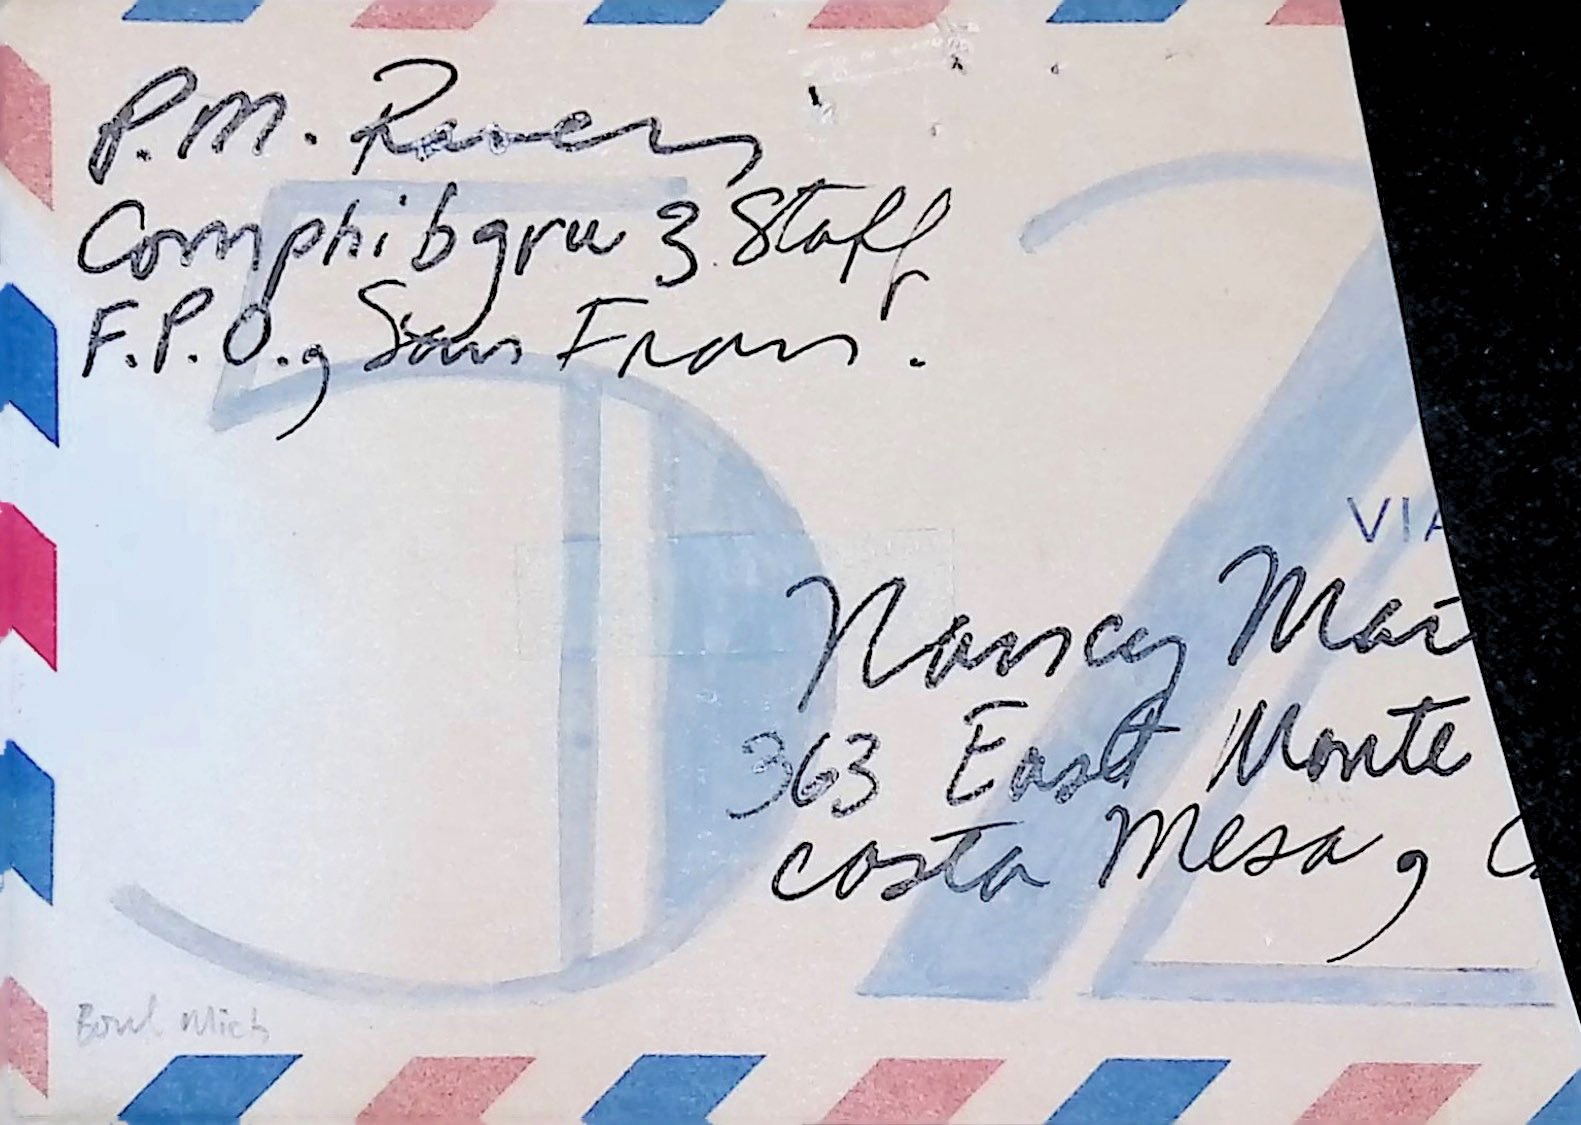 P.M. Rivers
Comphibgru 3 Staff
F.P.O., San Fran.
52
VIA
Nancy Mar
363 East Monte
Costa Mesa, C